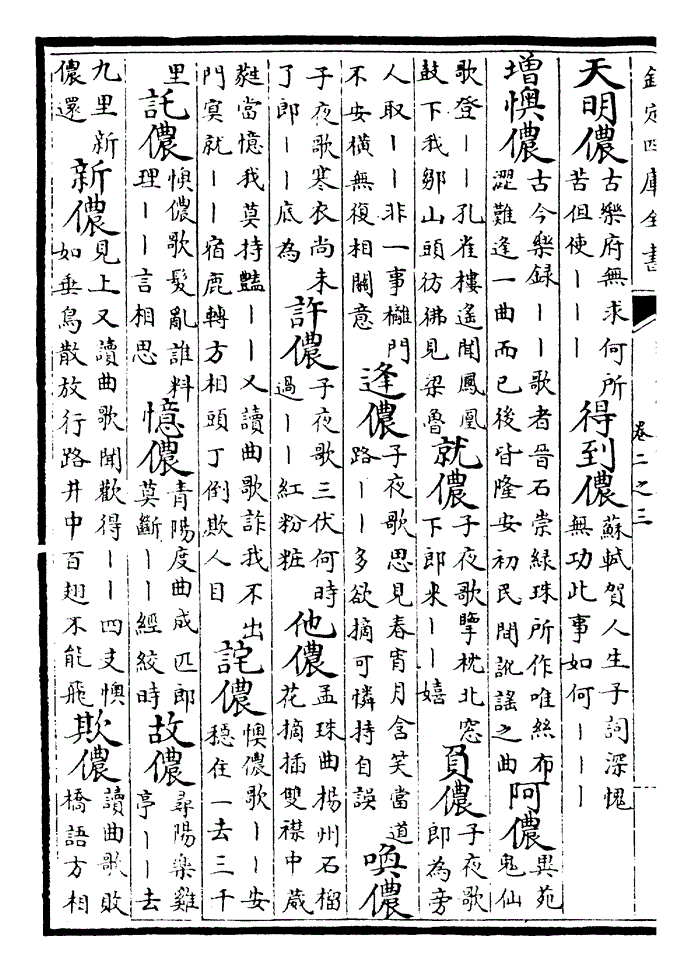 欽定四庫全書 卷二之三
天明儂 古樂府無求何所苦但使丨丨丨 得到儂 蘇軾賀人生子詞深愧無功此事如何丨丨丨
增懊儂 古今樂録丨丨歌者晉石崇緑珠所作唯絲布澀難逢一曲而已後皆隆安初民間訛謡之曲 阿儂 異苑鬼仙
歌登丨丨孔雀樓遙聞鳳凰鼓下我鄒山頭彷彿見梁魯 就儂 子夜歌擥枕北窓下郎來丨丨嬉 負儂 子夜歌郎為旁
人取丨丨非一事攡門不安橫無復相關意 逢儂 子夜歌思見春宵月含笑當道路丨丨多欲摘可憐持自誤 喚儂
子夜歌寒衣尚未了郎丨丨底為 許儂 子夜歌三伏何時過丨丨紅粉粧 他儂 孟珠曲楊州石榴花摘插雙襟中葳
蕤當憶我莫持豔丨丨又讀曲歌詐我不出門冥就丨丨宿鹿轉方相頭丁倒欺人目 詫儂 懊儂歌丨丨安穩住一去三千
里 託儂 懊儂歌髮亂誰料理丨丨言相思 憶儂 青陽度曲成匹郎莫斷丨丨經絞時 故儂 尋陽樂雞亭丨丨去
九里新儂還 新儂 見上又讀曲歌聞歡得丨丨四支懊如垂鳥散放行路井中百翅不能飛 欺儂 讀曲歌敗橋語方相